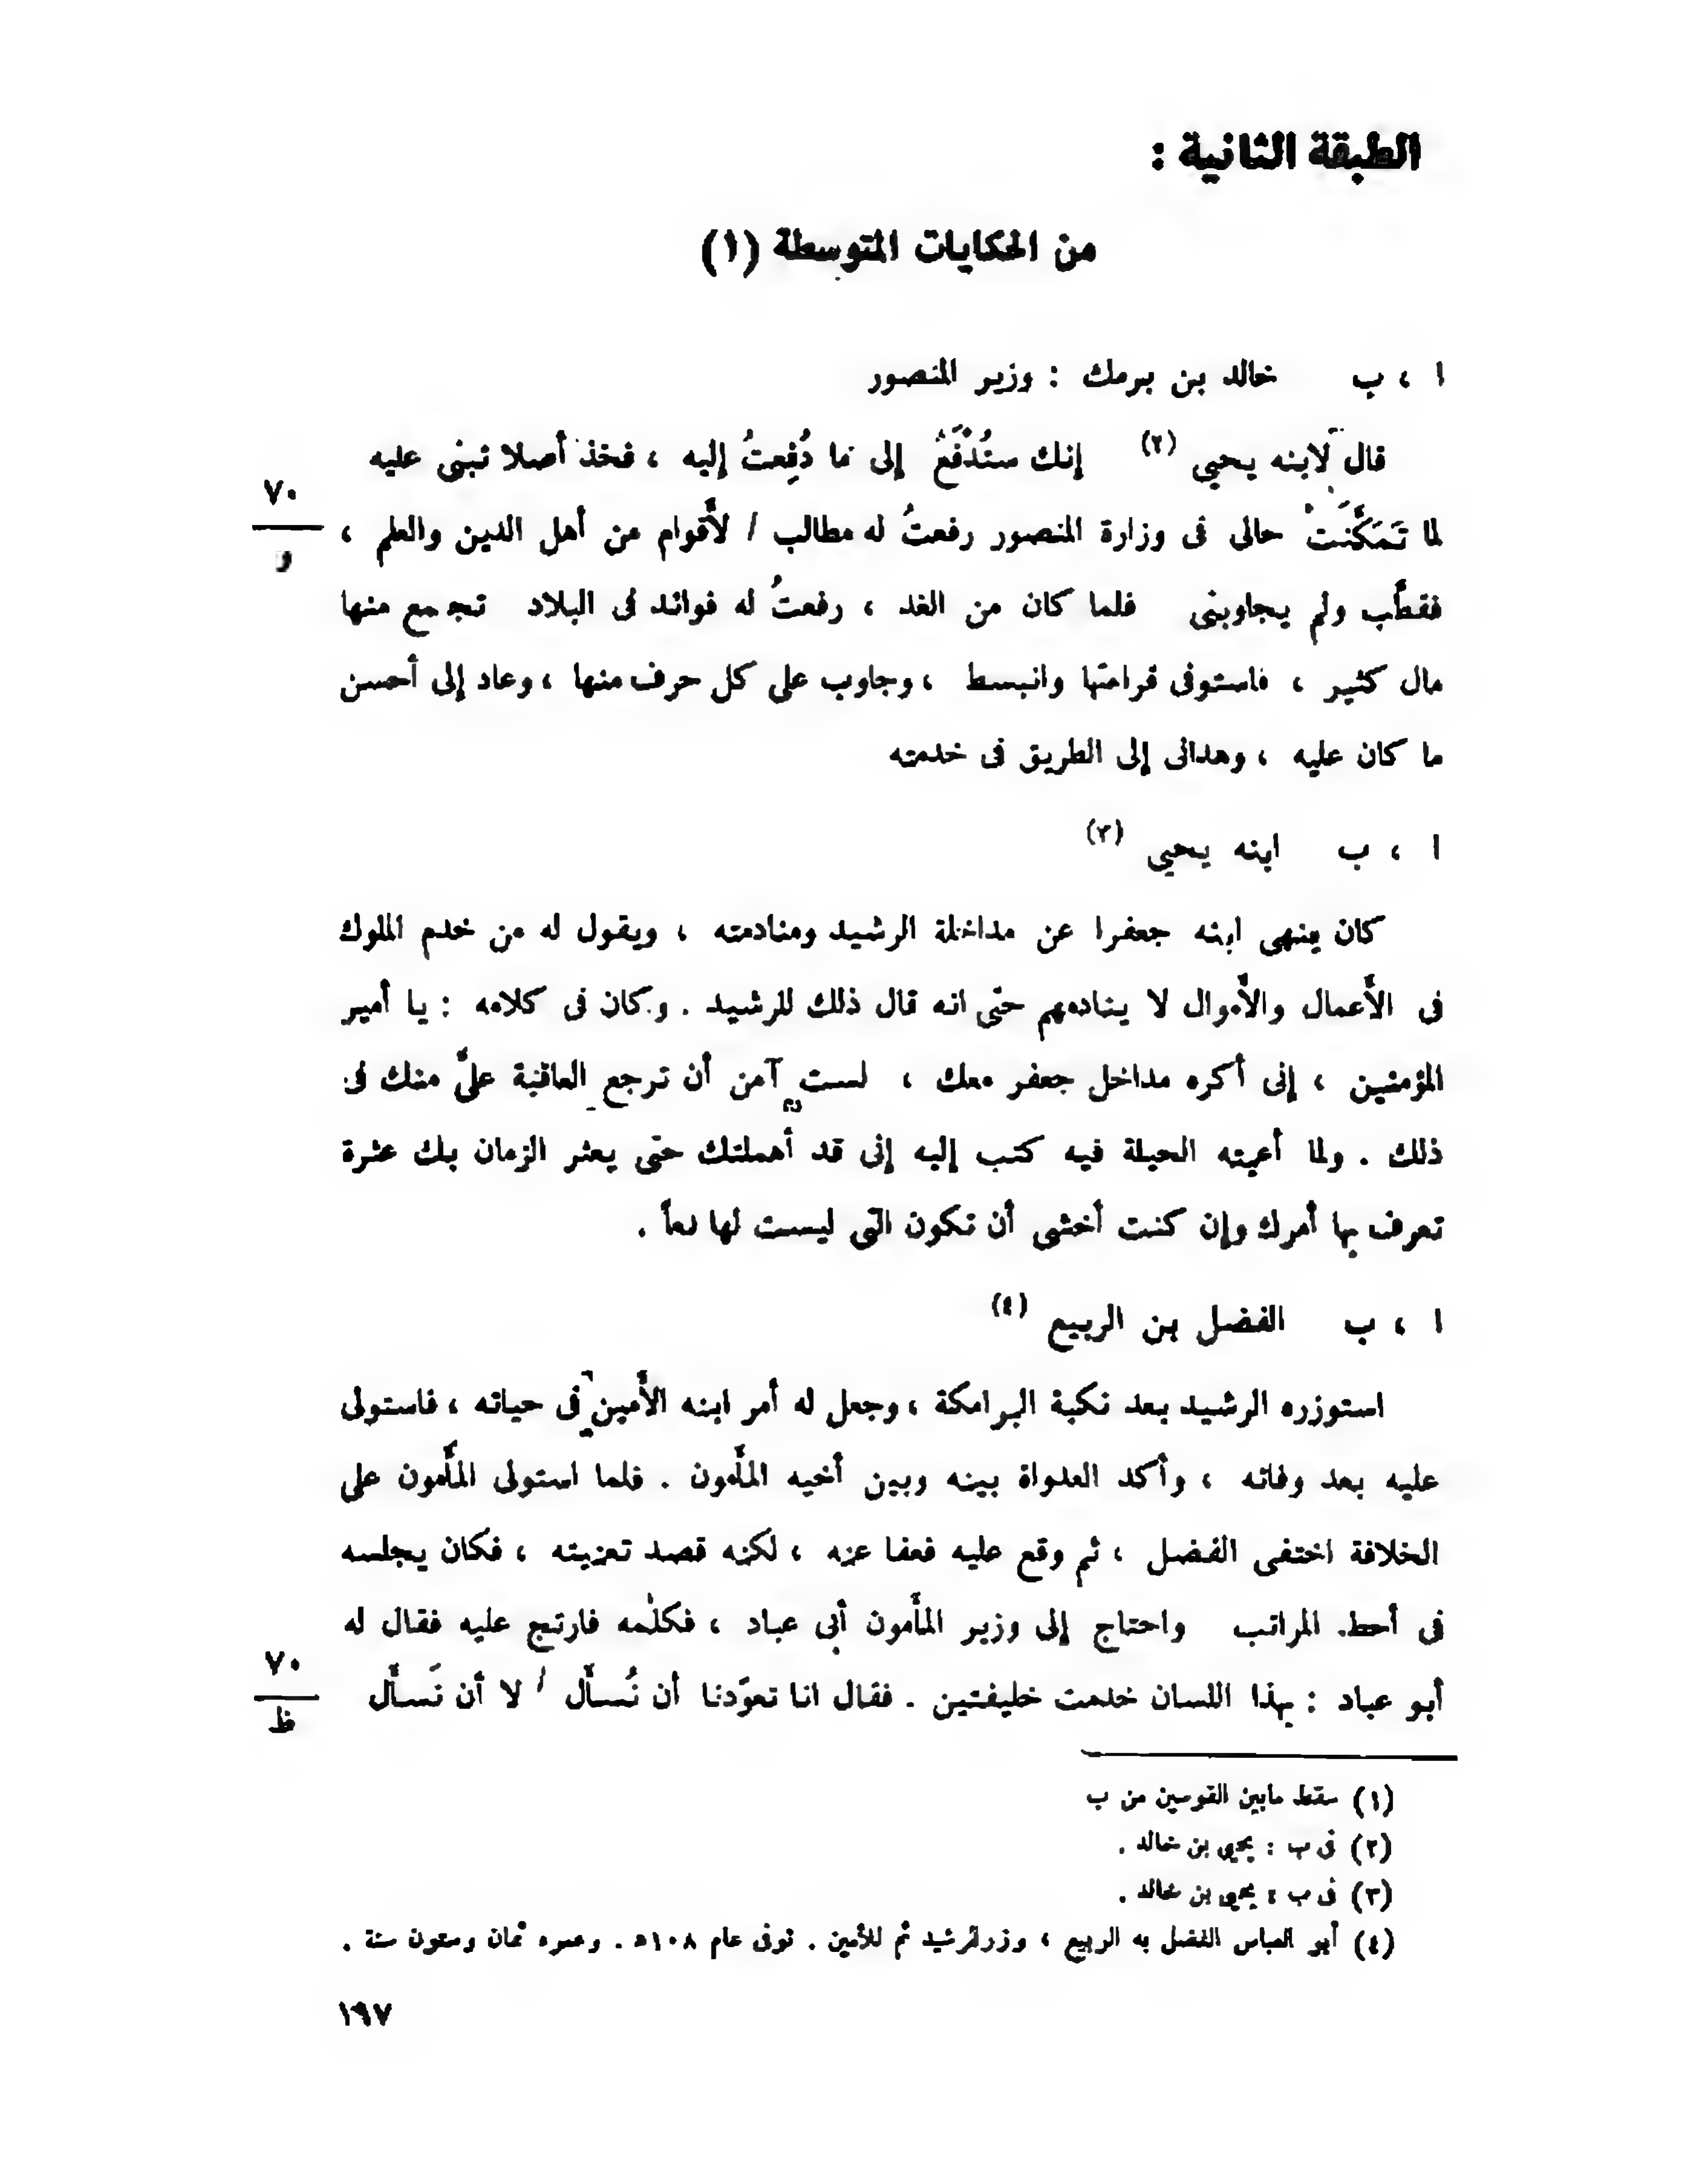 الطبقة الثانية :
من الحكايات المتوسطة (١)
ا ، ب خالد بن برمك : وزير المنصور
قال لابنه يحيى (٢) إنك ستُدْفَعُ إلى ما دُفِعتُ إليه ، فخذ أصلا تبنى عليه
٧٠
لما تَمَكَّنَتْ حالى فى وزارة المنصور رفعتُ له مطالب / لأَقوام من أهل الدين والعلم ،
و
فقطَّب ولم يجاوبنى فلما كان من الغد ، رفعتُ له فوائد فى البلاد تجمع منها
مال كثير ، فاستوفى قراءتها وانبسط ، وجاوب على كل حرف منها ، وعاد إلى أحسن
ما كان عليه ، وهدانى إلى الطريق فى خدمته
ا ، ب ابنه يحيى (٣)
كان ينهى ابنه جعفرا عن مداخلة الرشيد ومنادمته ، ويقول له من خدم الملوك
فى الأَعمال والأَموال لا ينادمهم حتى انه قال ذلك للرشيد . وكان فى كلامه : يا أمير
المؤمنين ، إنى أكره مداخل جعفر معك ، لست آمن أن ترجع العاقبة علىَّ منك فى
ذلك . ولما أعيته الحيلة فيه كتب إليه إنى قد أهملتك حتى يعثر الزمان بك عثرة
تعرف بها أمرك وإن كنت أخشى أن تكون التى ليست لها لعاً .
ا ، ب الفضل بن الربيع (٤)
استوزره الرشيد بعد نكبة البرامكة ، وجعل له أمر ابنه الأَمين فى حياته ، فاستولى
عليه بعد وفاته ، وأكد العدواة بينه وبين أخيه المأَمون . فلما استولى المأَمون على
الخلافة اختفى الفضل ، ثم وقع عليه فعفا عنه ، لكنه قصد تعزيته ، فكان يجلسه
فى أحط المراتب واحتاج إلى وزير المأَمون أبى عباد ، فكلمه فارتج عليه فقال له
٧٠
أبو عباد : بهذا اللسان خدمت خليفتين . فقال انا تعوّدنا أن نُسأَل / لا أن نَسأَل
ظ
(١) سقط مابين القوسين من ب
(٢) فى ب : يحيى بن خالد .
(٣) فى ب : يحيى بن خالد .
(٤) أبو العباس الفضل به الربيع ، وزر للرشيد ثم للأمين . توفى عام ١٠٨هـ . وعمره ثمان وستون سنة .
١٩٧